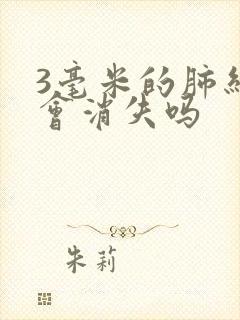 3毫米的肺
會消失吗
朱莉